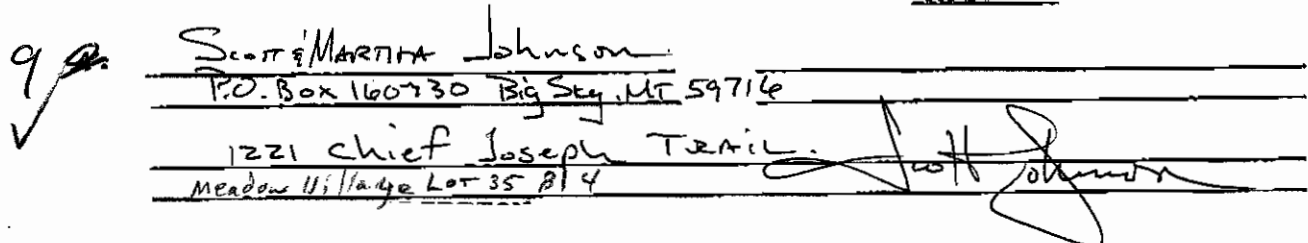 9 Scott & MARTHA Johnson
P.O. Box 160730 Big Sky, MT 59716
1221 Chief Joseph TRAIL. Scott Johnson
Meadow Village LOT 35 Bl 4